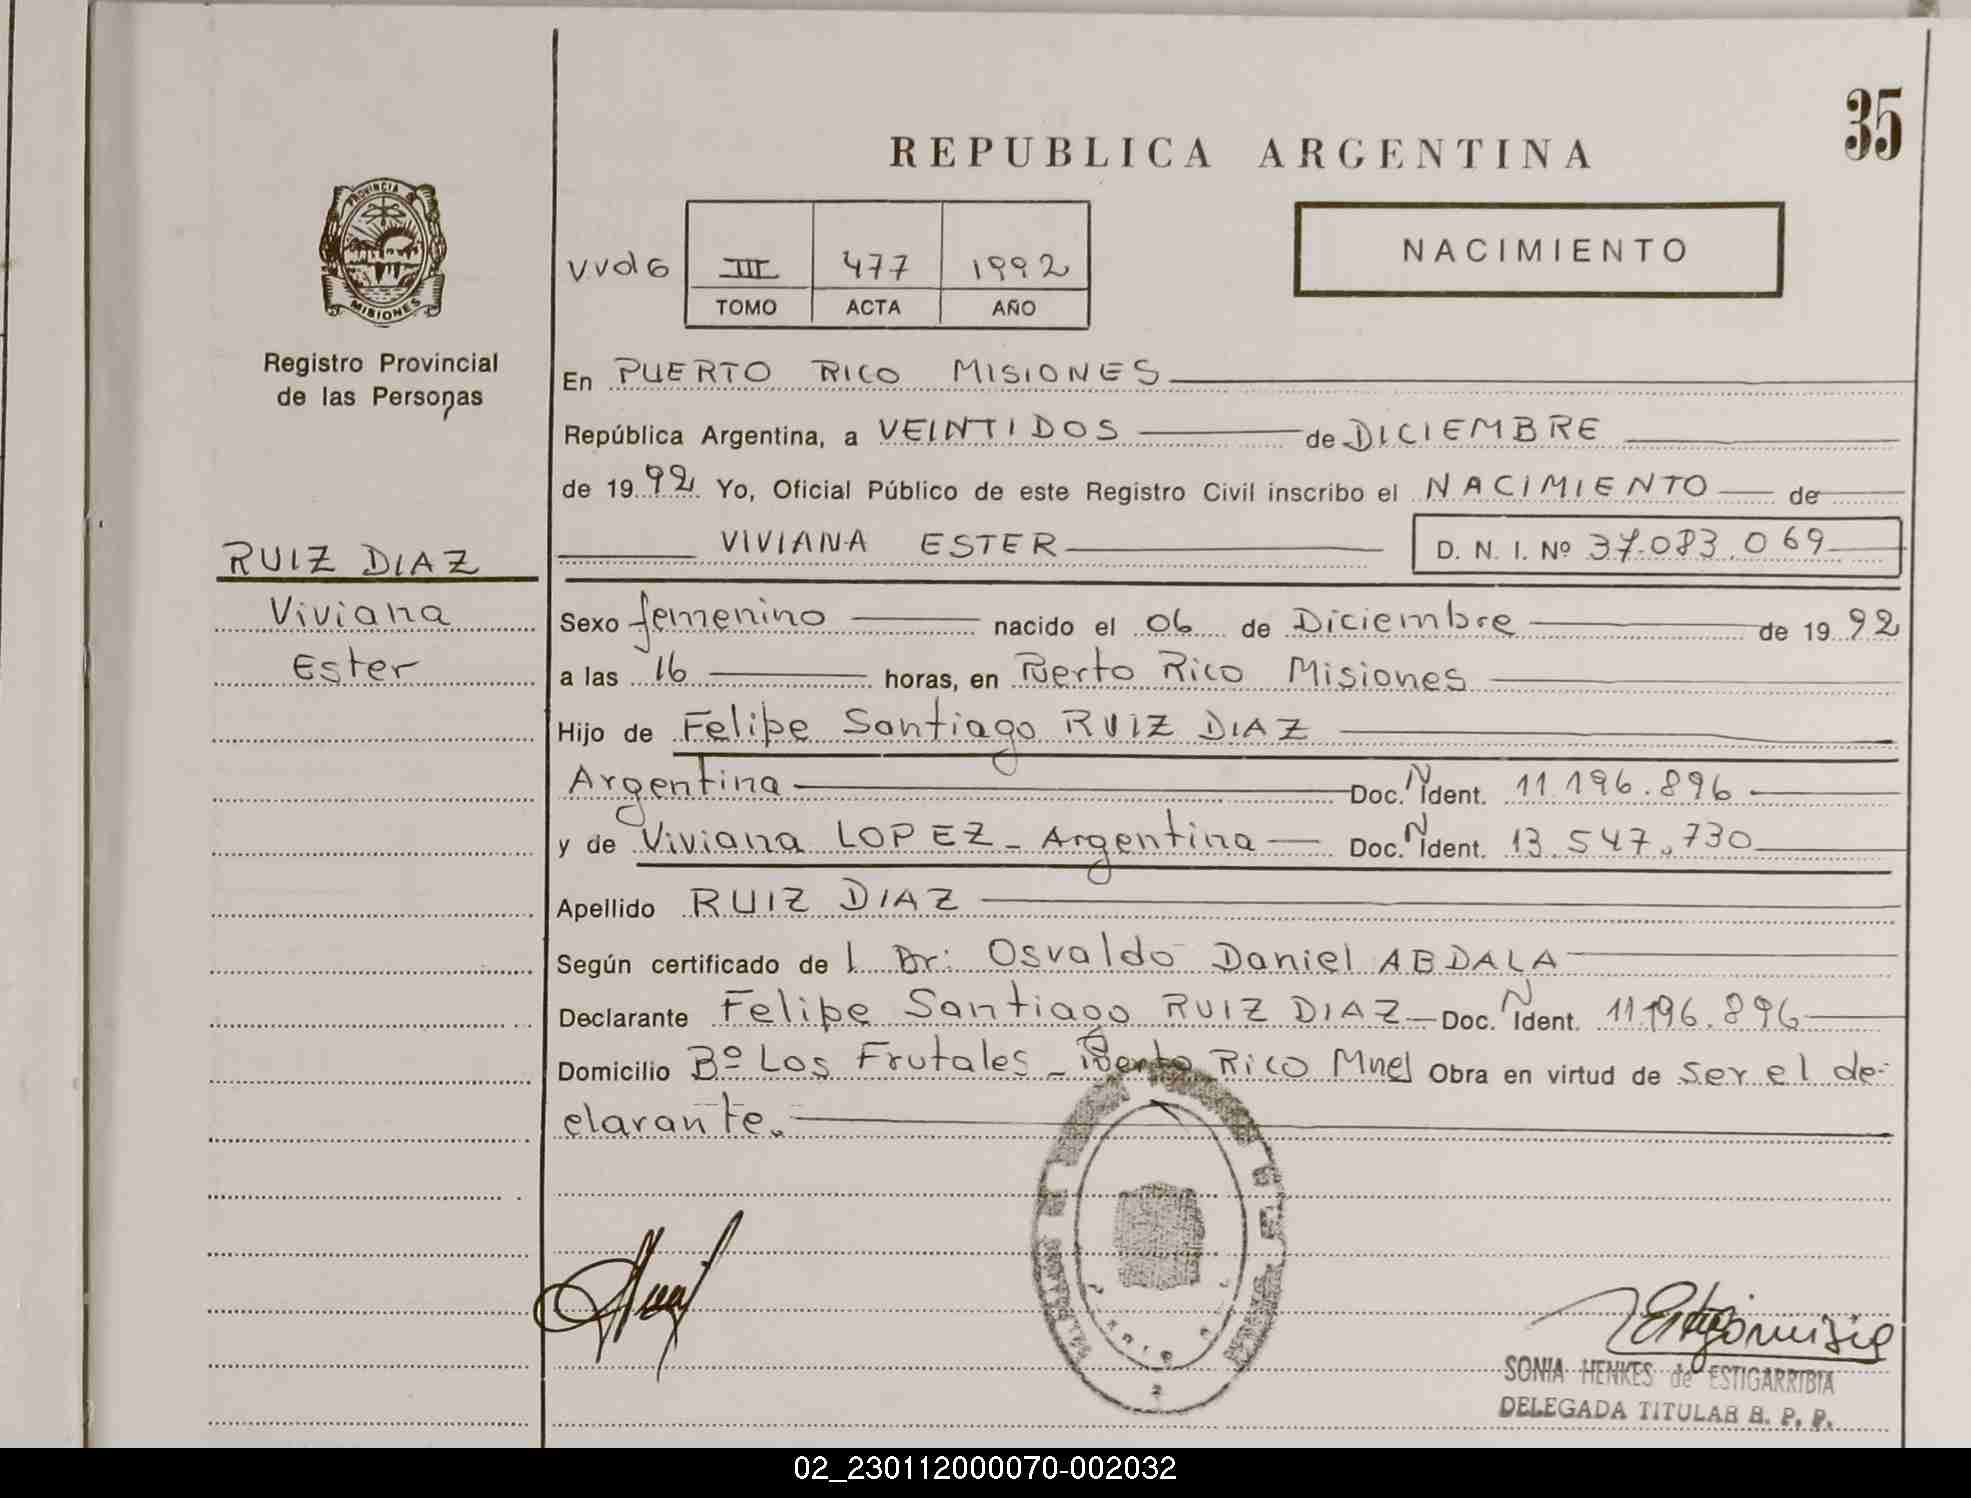 35
REPUBLICA ARGENTINA
PROVINCIA DE
MISIONES
NACIMIENTO
VVdG III 477 1992
TOMO ACTA AÑO
Registro Provincial
de las Personas
En PUERTO RICO MISIONES
República Argentina, a VEINTIDOS de DICIEMBRE
de 1992 Yo, Oficial Público de este Registro Civil inscribo el NACIMIENTO de
VIVIANA ESTER D. N. I. Nº 37.083.069
RUIZ DIAZ
Viviana
Ester
Sexo femenino nacido el 06 de Diciembre de 1992
a las 16 horas, en Puerto Rico Misiones
Hijo de Felipe Santiago RUIZ DIAZ
Argentina Doc. N Ident. 11.196.896
y de Viviana LOPEZ - Argentina Doc. N Ident. 13.547.730
Apellido RUIZ DIAZ
Según certificado de l Dr: Osvaldo Daniel ABDALA
Declarante Felipe Santiago RUIZ DIAZ Doc. N Ident. 11.196.896
Domicilio Bº Los Frutales - Puerto Rico Mnes Obra en virtud de ser el de-
clarante.
SONIA HENKES de ESTIGARRIBIA
DELEGADA TITULAR R. P. P.
02_230112000070-002032